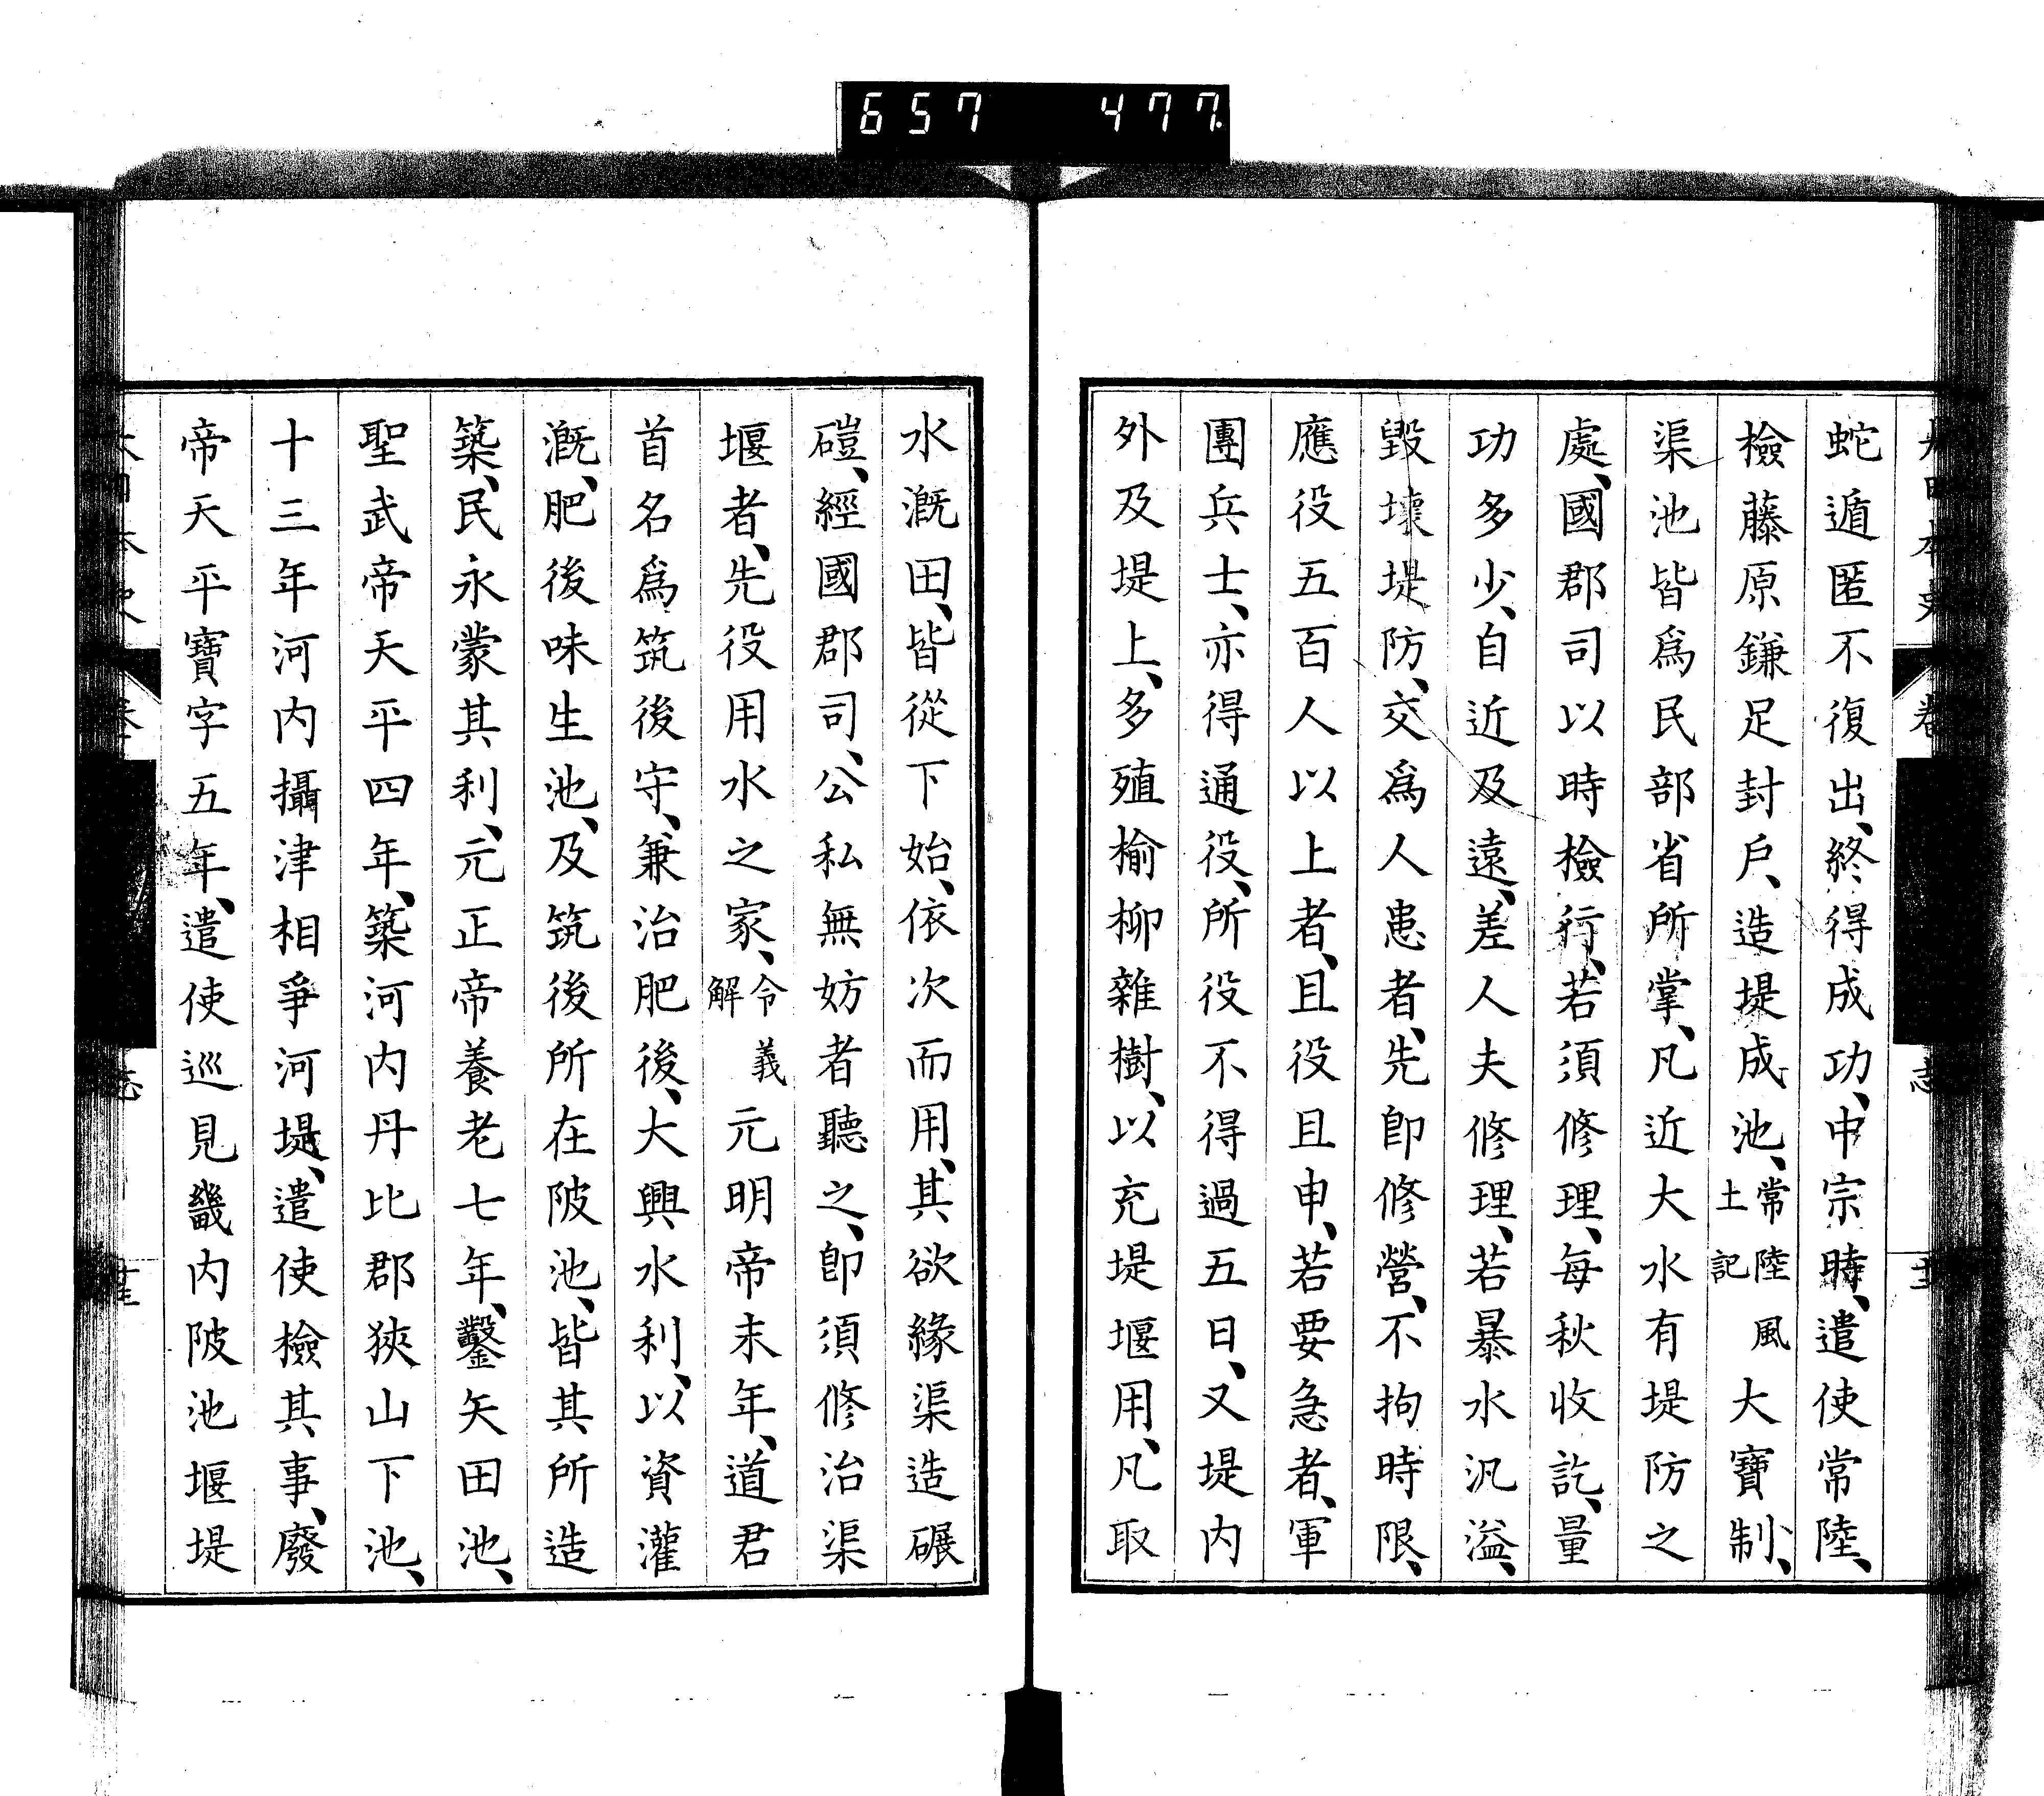 657 477
蛇遁匿不復出、終得成功、中宗時、遣使常陸、
檢藤原鎌足封戶、造堤成池、常陸風土記大寶制、
渠池皆爲民部省所掌、凡近大水有堤防之
處、國郡司以時檢行、若須修理、每秋收訖、量
功多少、自近及遠、差人夫修理、若暴水汎溢、
毀壞堤防、交爲人患者、先卽修營、不拘時限、
應役五百人以上者、且役且申、若要急者、軍
團兵士、亦得通役、所役不得過五日、又堤內
外及堤上、多殖榆柳雜樹、以充堤堰用、凡取
水漑田、皆從下始、依次而用、其欲緣渠造碾
磑、經國郡司、公私無妨者聽之、卽須修治渠
堰者、先役用水之家、令義解元明帝末年、道君
首名爲筑後守、兼治肥後、大興水利、以資灌
漑、肥後味生池、及筑後所在陂池、皆其所造
築、民永蒙其利、元正帝養老七年、鑿矢田池、
聖武帝天平四年、築河內丹比郡狹山下池、
十三年河內攝津相爭河堤、遣使檢其事、廢
帝天平寶字五年、遣使巡見畿內陂池堰堤